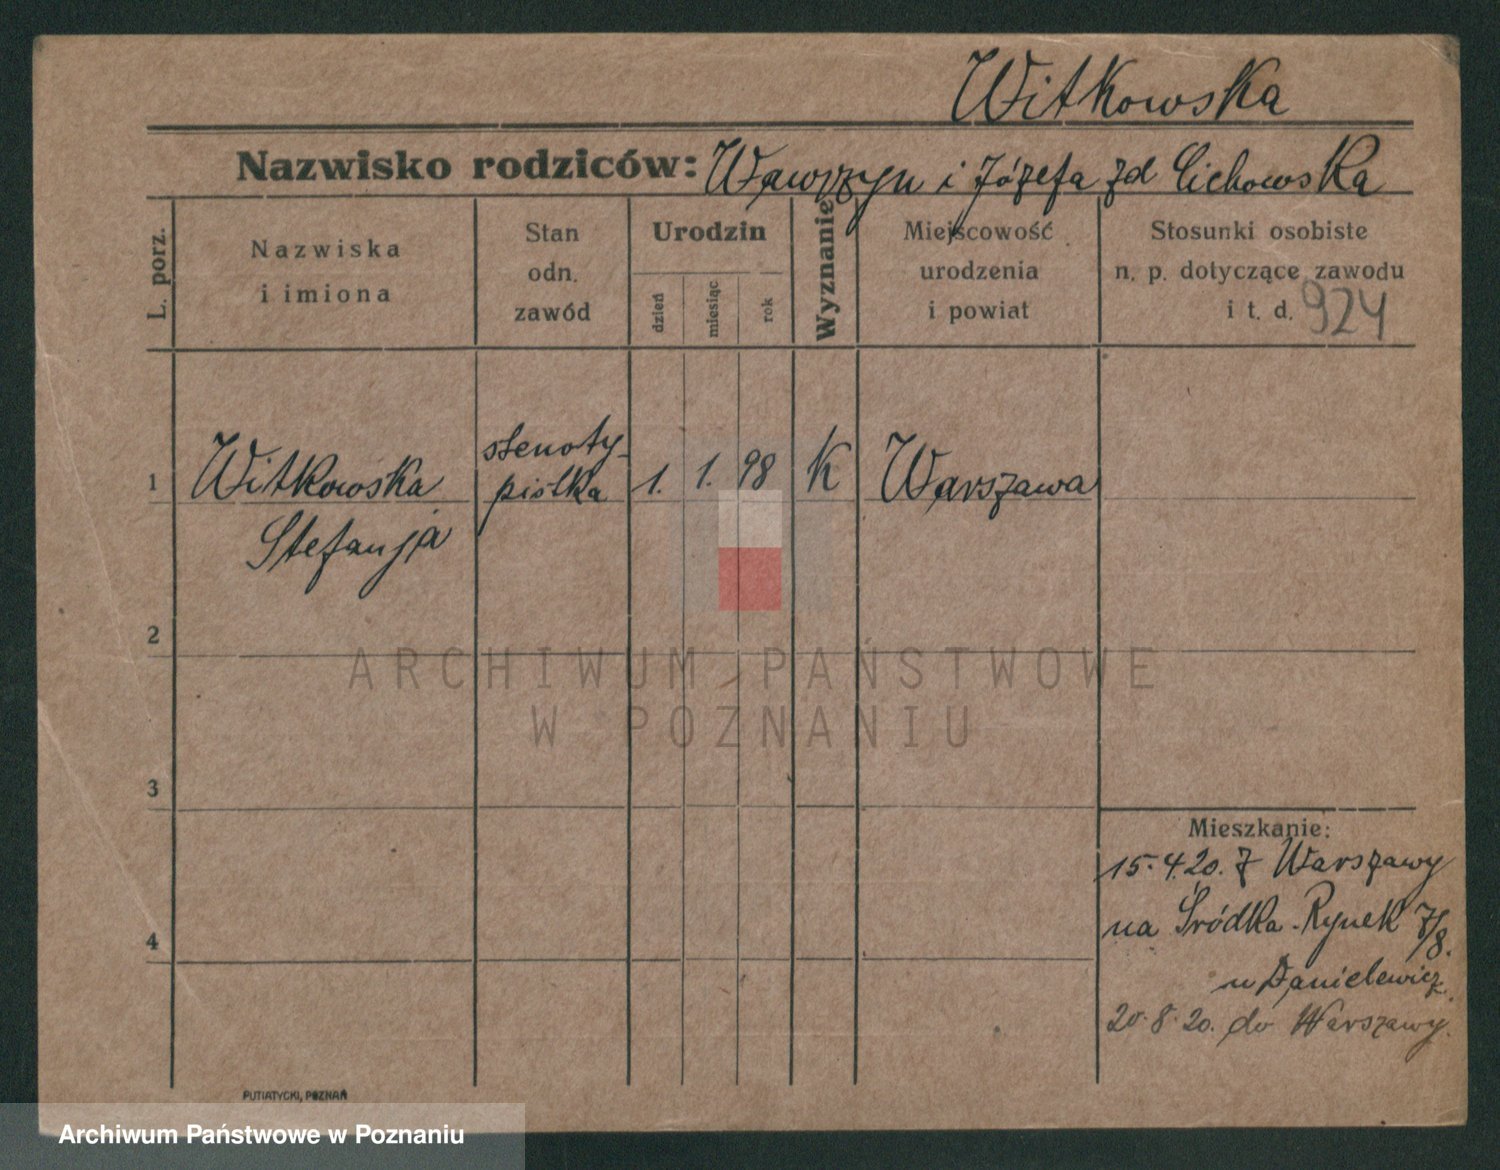 Witkowska
Nazwisko rodziców: Wawrzyn i Józefa zd Cichowska
L. porz.
Nazwiska
i imiona
Stan
odn.
zawód
Urodzin
dzień
miesiąc
rok
Wyznanie
Miejscowość
urodzenia
i powiat
Stosunki osobiste
n. p. dotyczące zawodu
i t. d. 924
1 Witkowska stenoty- 1. 1. 98 K Warszawa
Stefanja pistka
2
ARCHIWUM PAŃSTWOWE
W POZNANIU
3
Mieszkanie:
15.4.20. z Warszawy
na Śródka-Rynek 7/8.
u Danielewicz.
4
20.8.20. do Warszawy.
PUTIATYCKI, POZNAŃ
Archiwum Państwowe w Poznaniu